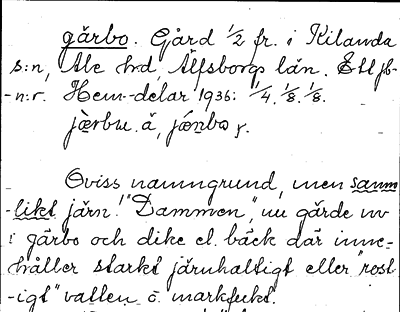 gärbo. Gård 1/2 fr. i Kilanda
s:n, Ale hrd, Älfsborgs län. Ett jb-
-n:r. Hem.-delar 1936: 1/4. 1/8. 1/8.
Oviss namngrund, men sann-
-likt järn! "Dammen," nu gärde nv
i gärbo och dike el. bäck där inne-
håller starkt järnhaltigt eller "rost
-igt" vatten o. markfukt.